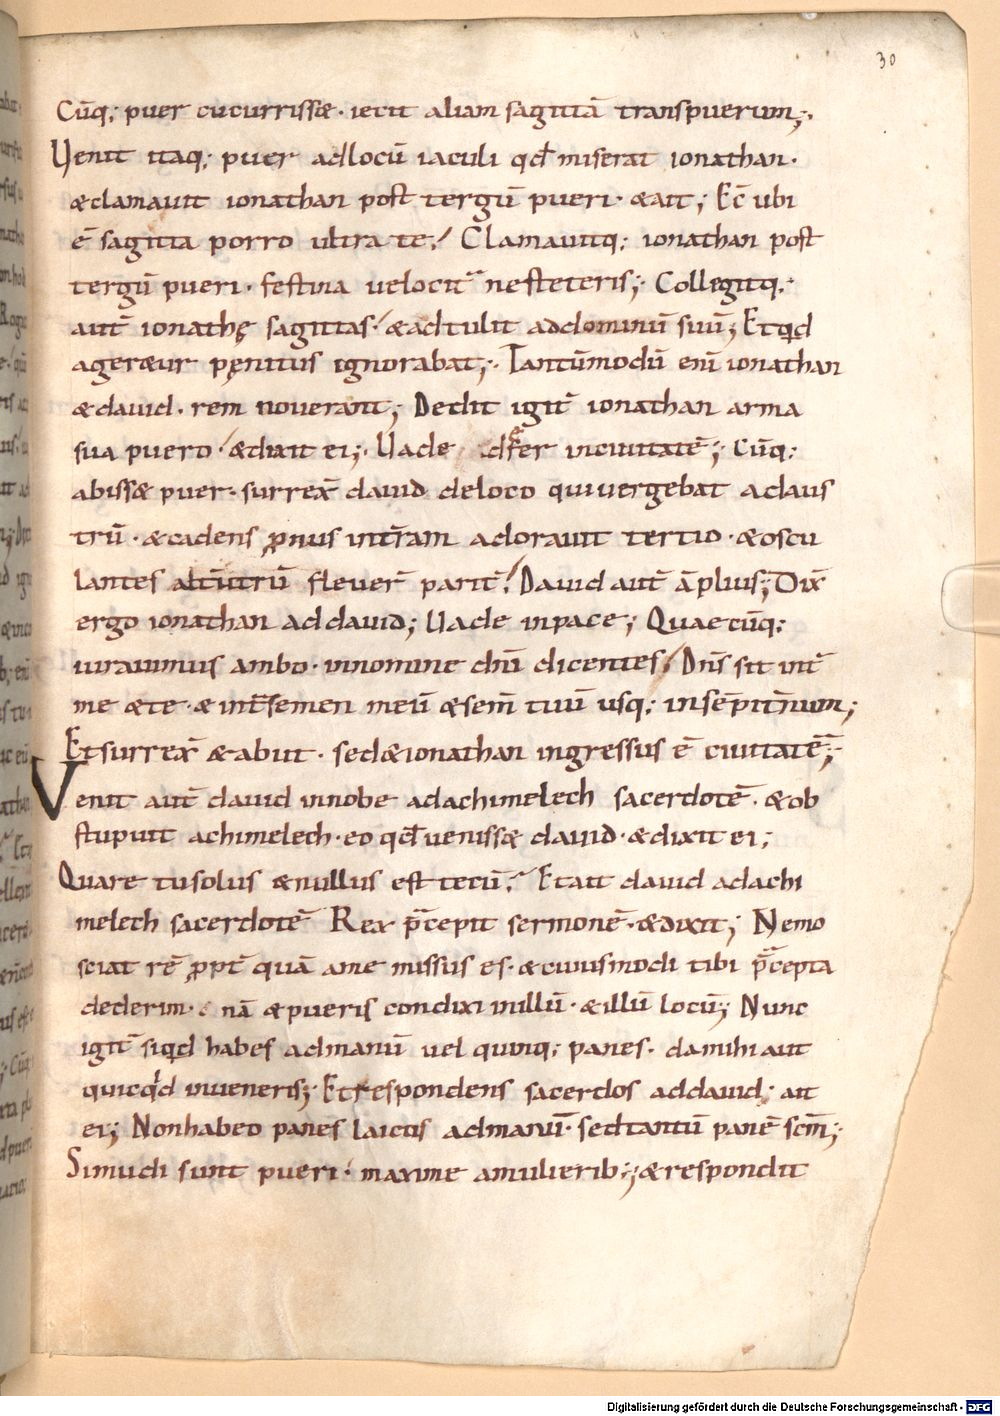 30
Cūq; puer cucurriss&· iecit aliam sagittā transpuerum;·
Uenit itaq; puer adlocū iaculi qđ miserat ionathan·
&clamauit ionathan post tergū pueri· &ait; Ec̄ ubi
ē sagitta porro ultra te? Clamauitq; ionathan post
tergū pueri· festina uelocit̄ nesteteris; Collegitq;
aut̄ ionathę sagittas· &adtulit addominū suū; Etqid
ager&ur pęnitus ignorabat;· Tantūmodū enī ionathan
&dauid· rem nouerant; Dedit igit̄ ionathan arma
sua puero· &dixit ei;· Uade defer inciuitatē; Cūq;
abiss& puer· surrex̄ dauid deloco quiuergebat adaus
trū· &cadens pronus int̄ram adorauit tertio· &oscu
lantes alt̄utrū fleuer̄ parit̄! Dauid aut̄ āplius; Dix̄
ergo ionathan addauid; Uade inpace; Quaecūq;
iurauimus ambo· innomine dnī dicentes! Dn̄s sit int̄
me &te· & int̄semen meū &sem̄ tuū usq; insēpit̄num;
Etsurrex̄ &abiit· sed&ionathan ingressus ē ciuitatē;·
Venit aut̄ dauid innobe adachimelech sacerdotē· &ob
stupuit achimelech· eo qđ ueniss& dauid· &dixit ei;
Quare tusolus &nullus est tecū? Etait dauid adachi
melech sacerdotē Rex p̄cepit sermonē· &dixit; Nemo
sciat rē ꝓpt̄ quā ame missus es· &cuiusmodi tibi p̄cepta
dederim· nā &pueris condixi inillū· &illū locū; Nunc
igit̄ siqid habes admanū uel quinq; panes· damihi aut
quicqid inueneris; Etrespondens sacerdos addauid; ait
ei; Nonhabeo panes laicus admanū· sedtantū panē scm̄;·
Simudi sunt pueri· maxime amulierib;; &respondit
Digitalisierung gefördert durch die Deutsche Forschungsgemeinschaft - DFG